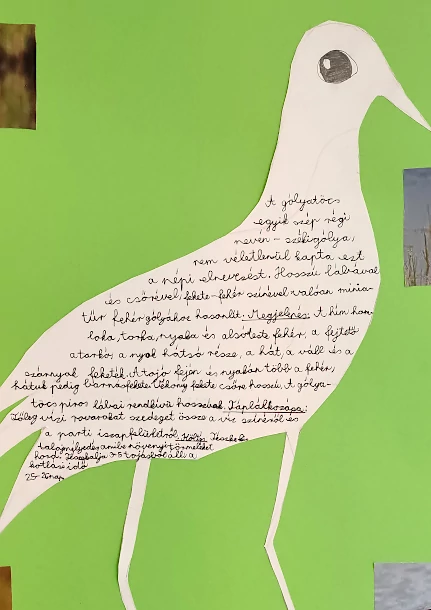 A gólyatöcs
egyik szép régi
nevén - székigólya,
nem véletlenül kapta ezt
a népi elnevezést. Hosszú lábaival
és csőrével, fekete-fehér színével valóan minia-
tűr fehér gólyához hasonlít. Megjelenés: A hím hom-
loka, torka, nyaka és alsóteste fehér, a fejtető
a tarkó, a nyak hátsó része, a hát, a váll és a
szárnyak feketék. A tojó fején és nyakán több a fehér,
hátuk pedig barnásfekete. Vékony fekete csőre hosszú. A gólya-
töcs piros lábai rendkívül hosszúak. Táplálkozása:
Főleg vízi rovarokat szedeget össze a víz színéről és
a parti iszapfelületről. Költés: Fészkét
talajmélyedés amibe növényi törmeléket
hord. Fészekalja 3-5 tojásból áll, a
kotlási idő
25-26 nap